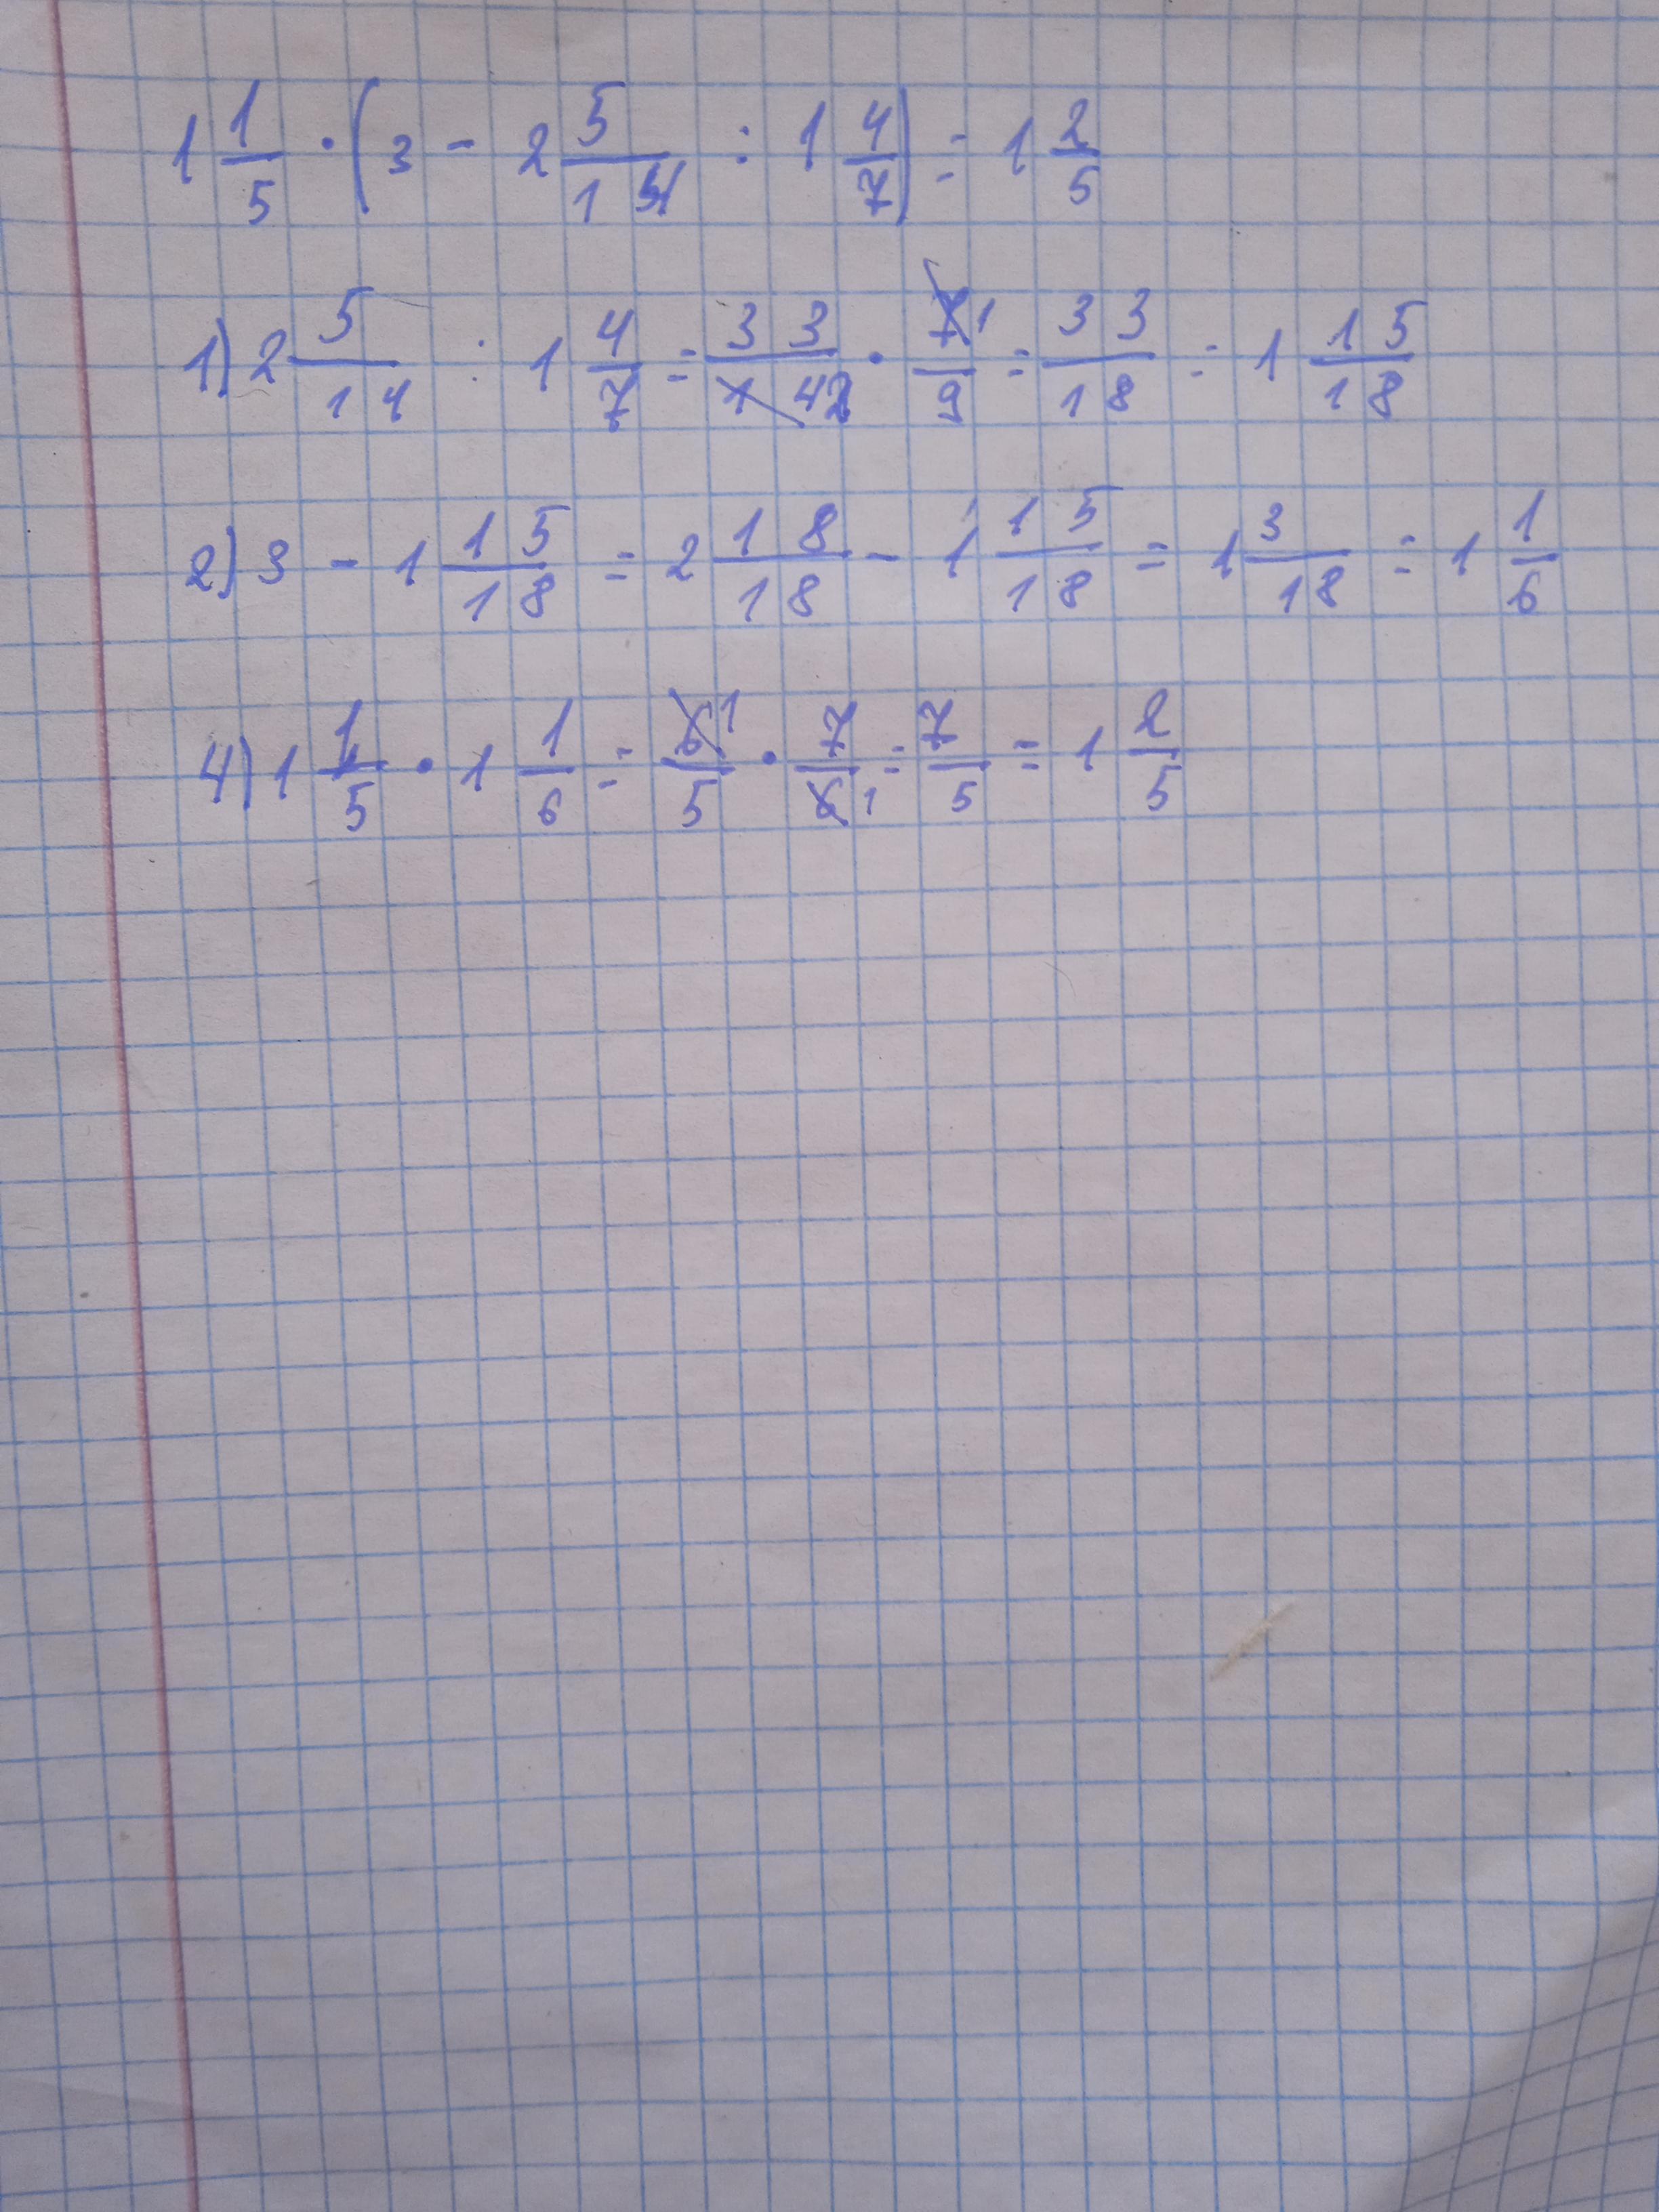 1 1/5 · (3 - 2 5/14 : 1 4/7) = 1 2/5
1) 2 5/14 : 1 4/7 = 33/14 2 · 7 1/9 = 33/18 = 1 15/18
2) 3 - 1 15/18 = 2 18/18 - 1 15/18 = 1 3/18 = 1 1/6
4) 1 1/5 · 1 1/6 = 6 1/5 · 7/6 1 = 7/5 = 1 2/5